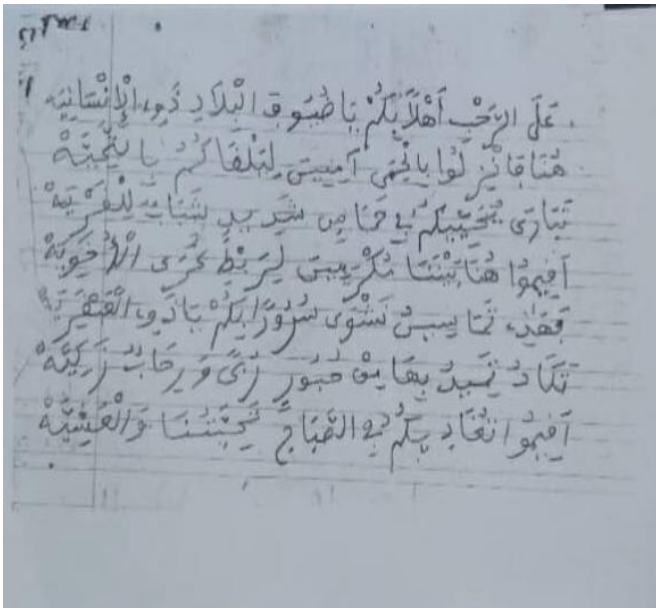 عَلَى الرَّحْبِ أَهْلًا بِكُمْ يَا ضُيُوفَ الْبِلَادِ ذَوِي الْإِنْسَانِيَهْ
هُنَا فَانْزِلُوا بِالْحِمَى آمِنِينَ لِنَلْقَاكُمْ بِالتَّحِيَّهْ
تَبَارَى تُحَيِّيكُمْ فِي حَمَاسٍ شَدِيدٍ شَبَابٌ لِلْقَرْيَةْ
أَقِيمُوا هُنَا بَيْنَنَا مُكْرَمِينَ لِرَبْطِ عُرَى الْأُخُوَّةْ
فَهَذِي تَمَايَسُ نَشْوَى سُرُورًا بِكُمْ يَا ذَوِي الْعَبْقَرِيَّةْ
تَكَادُ تَمِيدُ بِهَا مِنْ حُبُورٍ رُبًى وَرِحَابٌ زَكِيَّهْ
أَقِيمُوا تُغَادِيكُمْ فِي الصَّبَاحِ تَحِيَّتُنَا وَالْعَشِيَّهْ